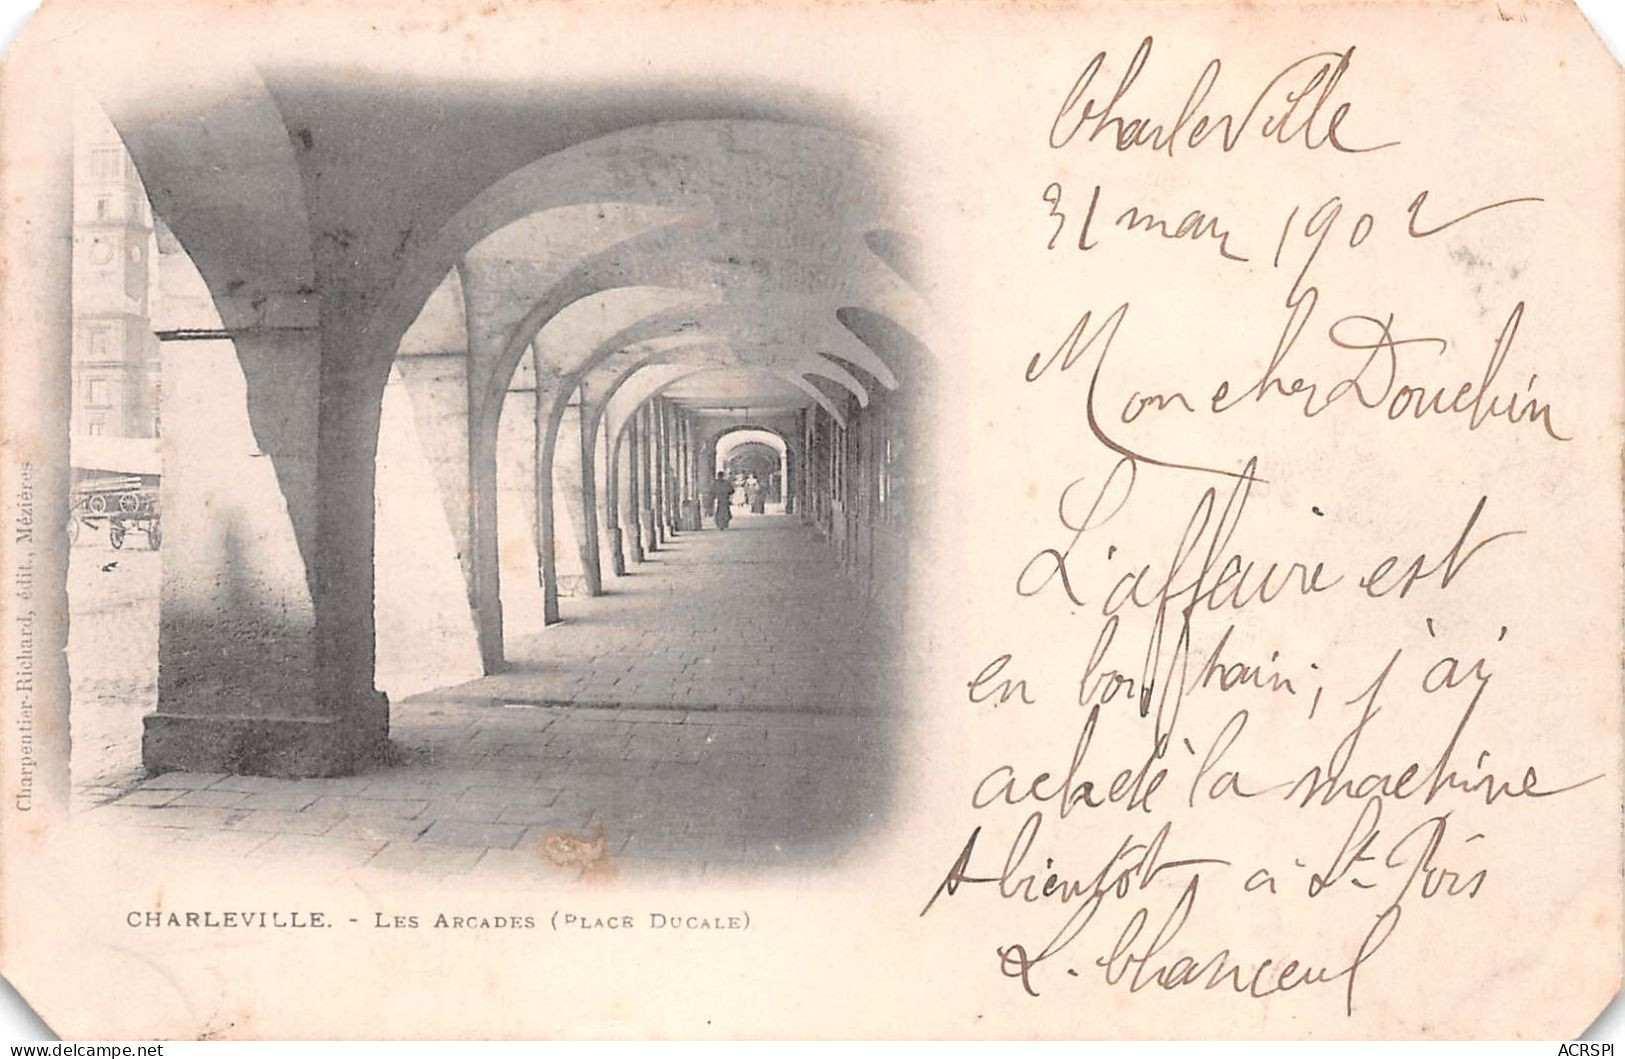 Charleville
31 mars 1902
Mon cher Douchin
L'affaire est
en bon train, j'ai
acheté la machine
A bientôt, à St-Pois
L. Chanceul
Charpentier-Richard, édit., Mézières
CHARLEVILLE. - LES ARCADES (PLACE DUCALE)
delcampe.net
ACRSPI